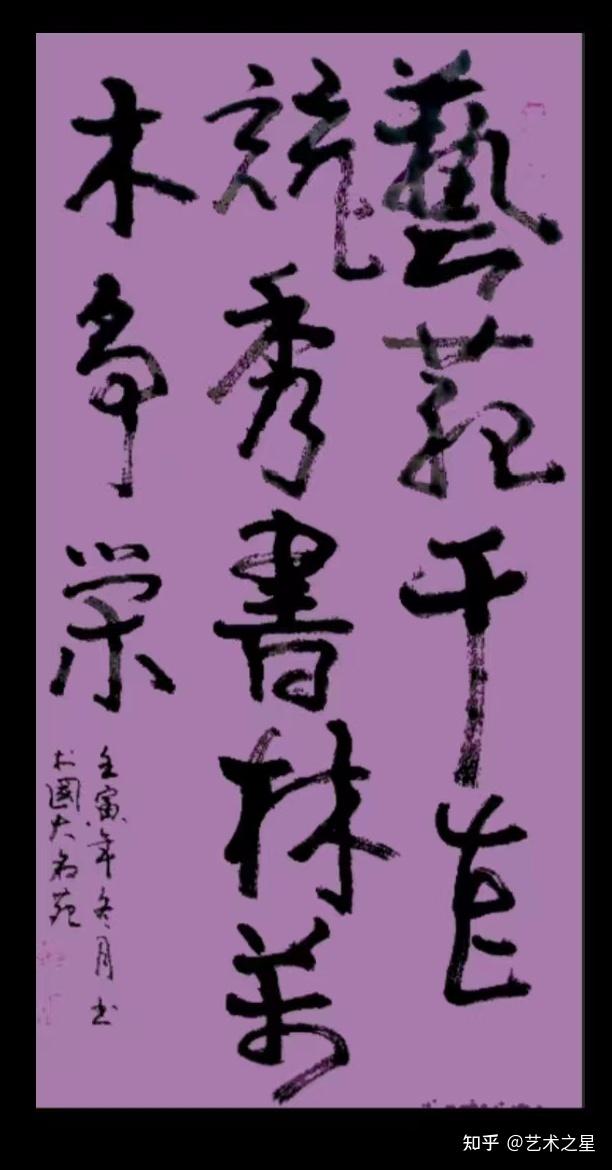 藝苑千花
競秀書林萬
木争榮
壬寅年冬月书
於國大名苑
知乎 @艺术之星